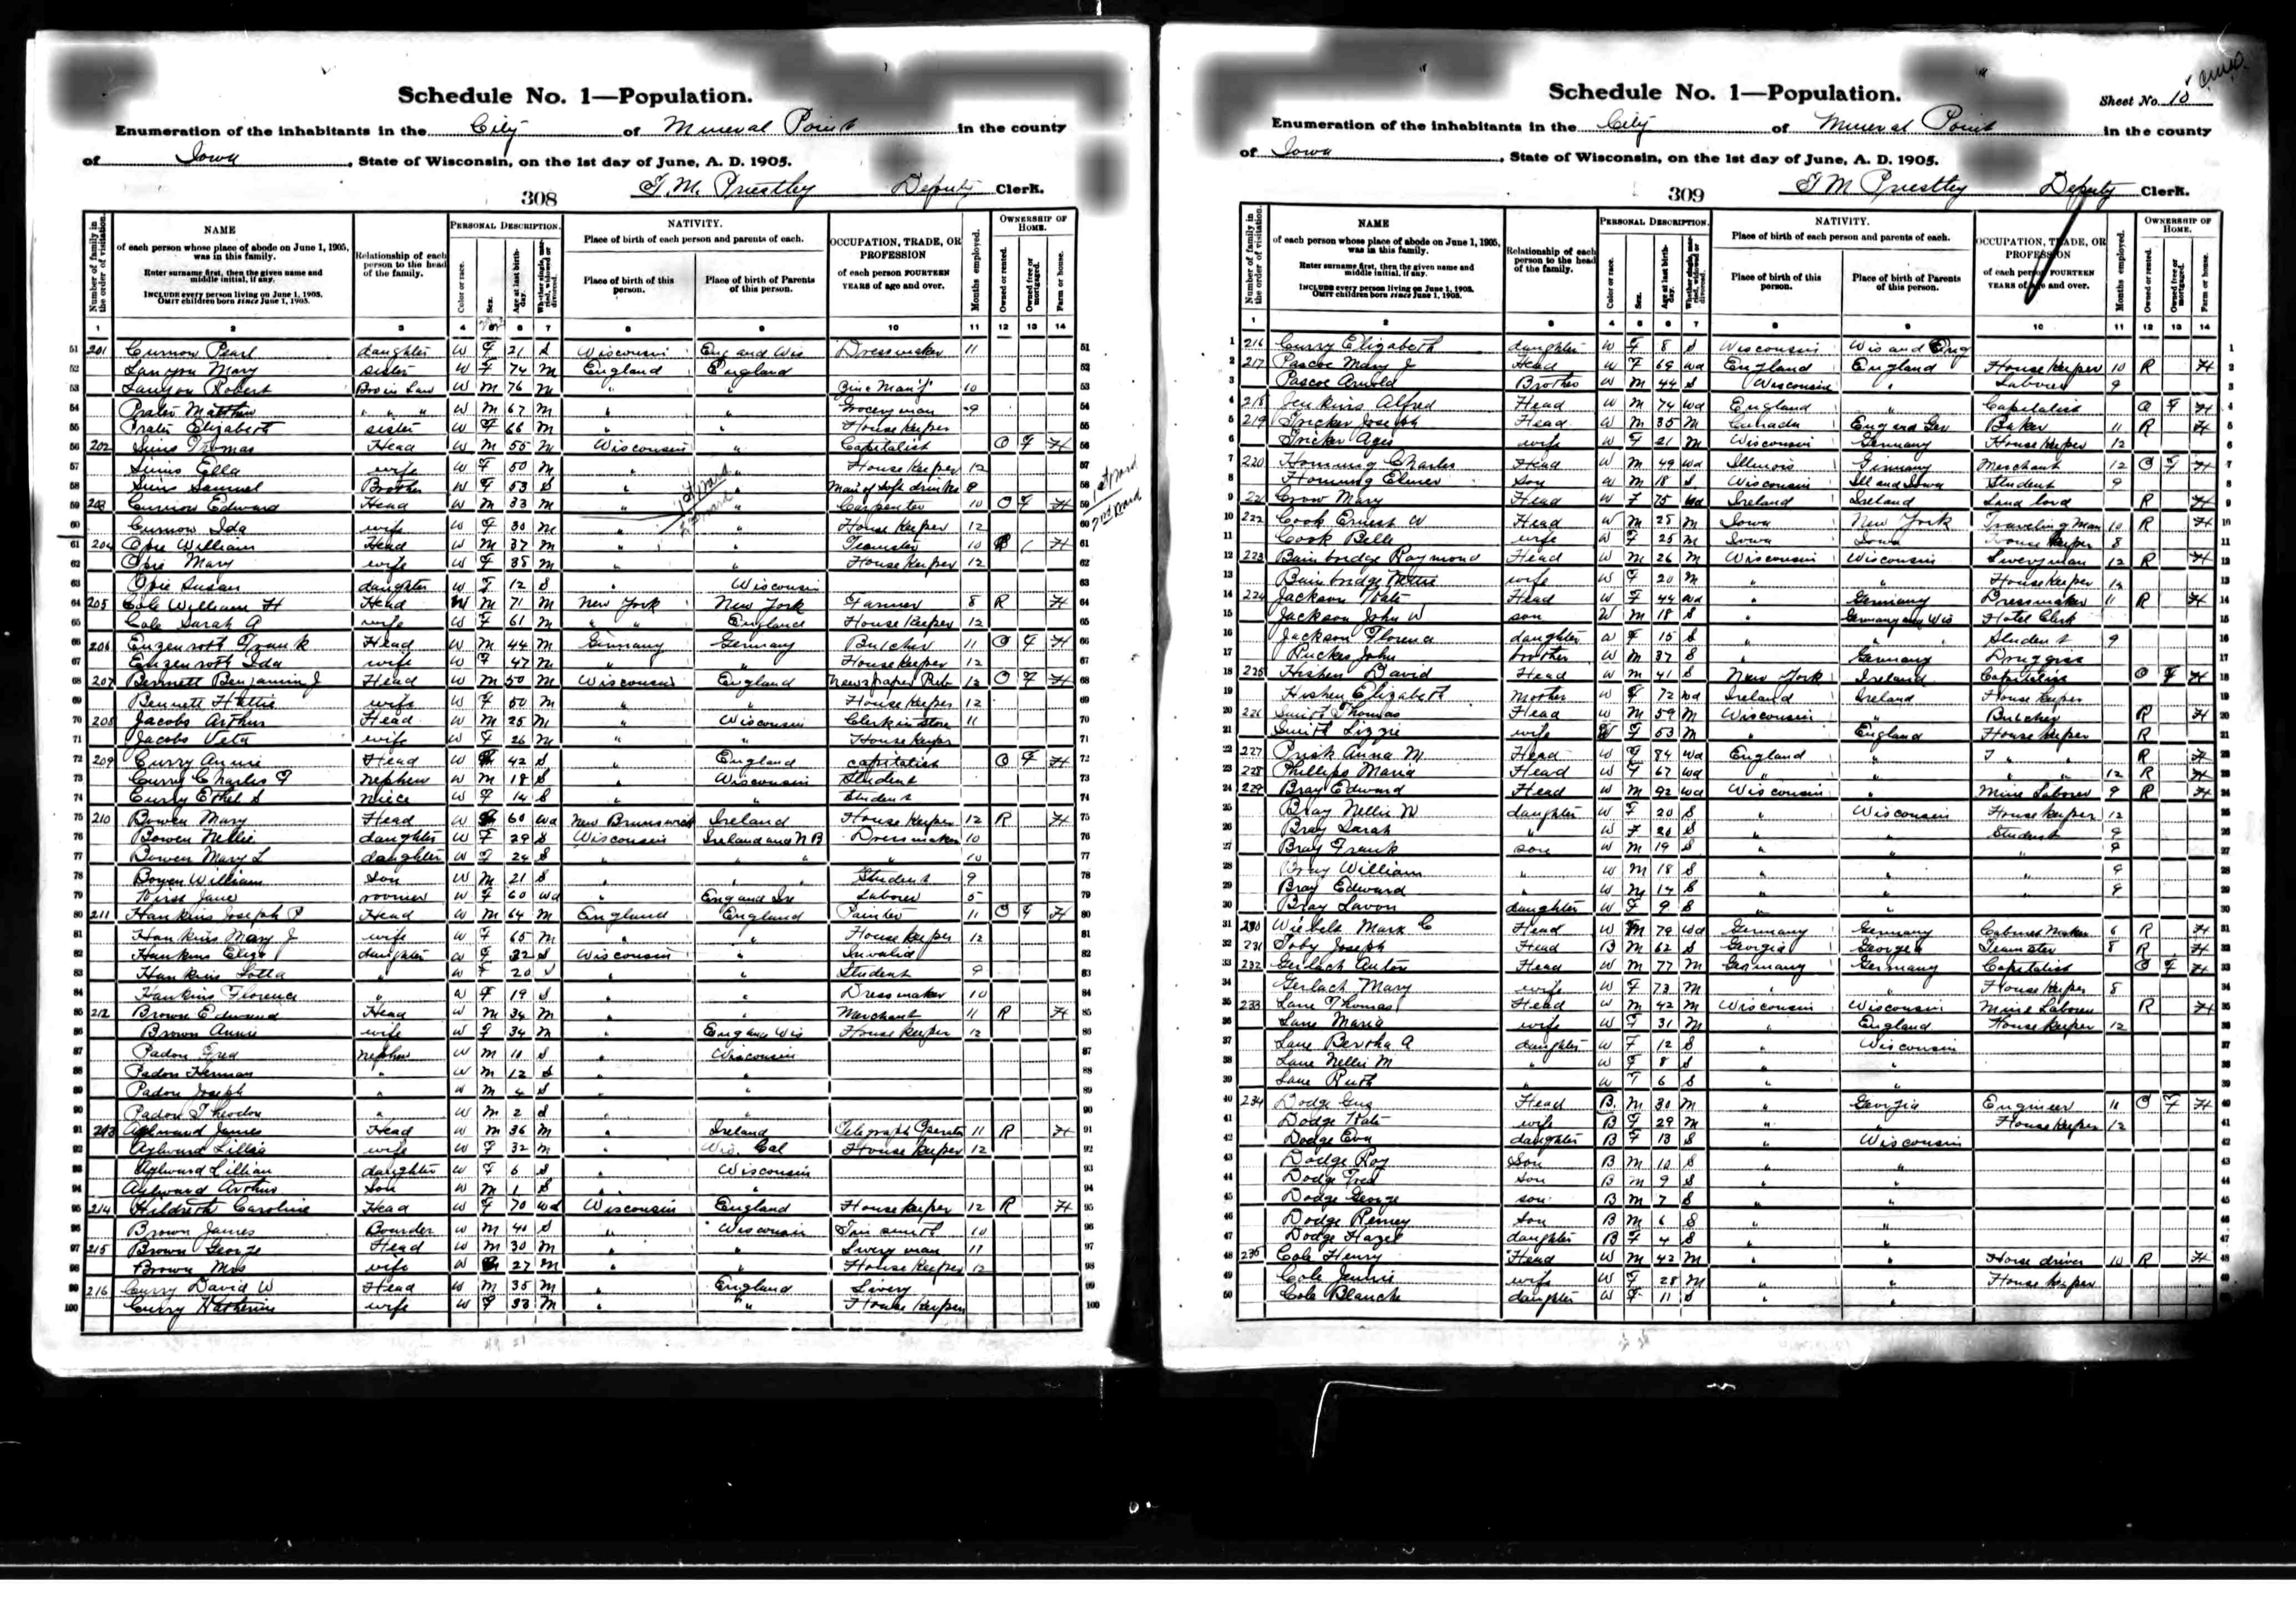 Schedule No. 1—Population.
Enumeration of the inhabitants in the City of Mineral Point in the county
of Iowa, State of Wisconsin, on the 1st day of June, A. D. 1905.
308 Priestley Deputy Clerk.
Number of family in the order of visitation.
NAME of each person whose place of abode on June 1, 1905, was in this family. Enter surname first, then the given name and middle initial, if any. INCLUDE every person living on June 1, 1905. OMIT children born since June 1, 1905.
Relationship of each person to the head of the family.
PERSONAL DESCRIPTION. Color or race. Sex. Age at last birth-day. Whether single, mar-ried, widowed or divorced.
NATIVITY. Place of birth of each person and parents of each. Place of birth of this person. Place of birth of Parents of this person.
OCCUPATION, TRADE, OR PROFESSION of each person FOURTEEN YEARS of age and over.
Months employed.
OWNERSHIP OF HOME. Owned or rented. Owned free or mortgaged. Farm or house.
1 2 3 4 6 7 8 9 10 11 12 13 14
51 201 Curnow Pearl daughter W F 21 S Wisconsin Eng and Wis Dressmaker 11 51
52 Lanyon Mary sister W F 74 M England England 52
53 Lanyon Robert Bro in Law W M 76 M " " 10 53
54 Matthew " " " W M 67 M " " Grocery man 9 54
55 Elizabeth sister W F 66 M " " House Keeper 55
56 202 Sims Thomas Head W M 55 M Wisconsin " Capitalist O F H 56
57 Sims Ella wife W F 50 M " " House Keeper 12 57
58 Sims Samuel Brother W F 53 S " " Man'f of Soft drinks 8 58
59 203 Curnow Edward Head W M 33 M " " Carpenter 10 O F H 59
60 Curnow Ida wife W F 30 M " " House Keeper 12 60
1st Ward
2nd Ward
61 204 Opie William Head W M 37 M " " Teamster 10 H 61
62 Opie Mary wife W F 35 M " " House Keeper 12 62
63 Opie Susan daughter W F 12 S " Wisconsin 63
64 205 Cole William H Head W M 71 M New York New York Farmer 8 R H 64
65 Cole Sarah A wife W F 61 M " " England House Keeper 12 65
66 206 Engenroth Frank Head W M 44 M Germany Germany Butcher 11 O F H 66
67 Engenroth Ida wife W F 47 M " " House Keeper 12 67
68 207 Bennett Benjamin J Head W M 50 M Wisconsin England Newspaper Pub 12 O F H 68
69 Bennett Hattie wife W F 50 M " " House Keeper 12 69
70 208 Jacobs Arthur Head W M 25 M " Wisconsin Clerk in Store 11 70
71 Jacobs Veta wife W F 26 M " " House Keeper 71
72 209 Curry Annie Head W F 42 S " England capitalist O F H 72
73 Curry Charles F nephew W M 18 S " Wisconsin Student 73
74 Curry Ethel S niece W F 14 S " " Student 74
75 210 Bowen Mary Head W F 60 Wd New Brunswick Ireland House Keeper 12 R H 75
76 Bowen Nellie daughter W F 29 S Wisconsin Ireland and N B Dressmaker 10 76
77 Bowen Mary L daughter W F 24 S " " " " 10 77
78 Bowen William Son W M 21 S " " " Student 9 78
79 Jane roomer W F 60 Wd " Eng and Ire Laborer 5 79
80 211 Hankins Joseph P Head W M 64 M England England Painter 11 O F H 80
81 Hankins Mary J wife W F 65 M " " House Keeper 12 81
82 Hankins Eliza daughter W F 32 S Wisconsin " Invalid 82
83 Hankins Lotta " W F 20 S " " Student 9 83
84 Hankins Florence " W F 19 S " " Dressmaker 10 84
85 212 Brown Edward Head W M 34 M " " Merchant 11 R H 85
86 Brown Annie wife W F 34 M " Eng and Wis House Keeper 12 86
87 Padon Fred nephew W M 11 S " Wisconsin 87
88 Padon Herman " W M 12 S " " 88
89 Padon Joseph " W M 4 S " " 89
90 Padon Theodor " W M 2 S " " 90
91 213 Aylward James Head W M 36 M " Ireland Telegraph Operator 11 R H 91
92 Aylward Lillia wife W F 32 M " Wis. Cal House Keeper 12 92
93 Aylward Lillian daughter W F 6 S " Wisconsin 93
94 Aylward Arthur Son W M 1 S " " 94
95 214 Hildreth Caroline Head W F 70 Wd Wisconsin England House Keeper 12 R H 95
96 Brown James Boarder W M 40 S " Wisconsin Tin smith 10 96
97 215 Brown George Head W M 30 M " " Livery man 11 97
98 Brown Mrs wife W F 27 M " " House Keeper 12 98
99 216 Curry David W Head W M 35 M " England Livery 99
100 Curry Katherine wife W F 33 M " " House Keeper 100
Sheet No. 10
Schedule No. 1—Population.
Enumeration of the inhabitants in the City of Mineral Point in the county
of Iowa, State of Wisconsin, on the 1st day of June, A. D. 1905.
309 Priestley Deputy Clerk.
Number of family in the order of visitation.
NAME of each person whose place of abode on June 1, 1905, was in this family. Enter surname first, then the given name and middle initial, if any. INCLUDE every person living on June 1, 1905. OMIT children born since June 1, 1905.
Relationship of each person to the head of the family.
PERSONAL DESCRIPTION. Color or race. Sex. Age at last birth-day. Whether single, mar-ried, widowed or divorced.
NATIVITY. Place of birth of each person and parents of each. Place of birth of this person. Place of birth of Parents of this person.
OCCUPATION, TRADE, OR PROFESSION of each person FOURTEEN YEARS of age and over.
Months employed.
OWNERSHIP OF HOME. Owned or rented. Owned free or mortgaged. Farm or house.
1 2 3 4 5 6 7 8 9 10 11 12 13 14
1 216 Curry Elizabeth daughter W F 8 S Wisconsin Wis and Eng 1
2 217 Pascoe Mary J Head W F 69 Wd England England House Keeper 10 R H 2
3 Pascoe Arnold Brother W M 44 S Wisconsin " Laborer 9 3
4 218 Jenkins Alfred Head W M 74 Wd England " Capitalist O F H 4
5 219 Tricker Joseph Head W M 35 M Canada Eng and Ger Baker 11 R H 5
6 Tricker Ages wife W F 21 M Wisconsin Germany House Keeper 12 6
7 220 Homing Charles Head W M 49 Wd Illinois Germany Merchant 12 O F H 7
8 Homing Elmer Son W M 18 S Wisconsin Ill and Iowa Student 9 8
9 221 Crow Mary Head W F 75 Wd Ireland Ireland Land lord R H 9
10 222 Cook Ernest W Head W M 25 M Iowa New York Traveling Man 10 R H 10
11 Cook Belle wife W F 25 M Iowa Iowa House Keeper 8 11
12 223 Bainbridge Raymond Head W M 26 M Wisconsin Wisconsin Liveryman 12 R H 12
13 Bainbridge Nettie wife W F 20 M " " House Keeper 12 13
14 224 Jackson Kate Head W F 44 Wd " Germany Dressmaker 11 R H 14
15 Jackson John W son W M 18 S " Germany and Wis Hotel Clerk 15
16 Jackson Florence daughter W F 15 S " " " Student 9 16
17 John brother W M 37 S " Germany Druggist 17
18 225 Hishen David Head W M 41 S New York Ireland Capitalist O F H 18
19 Hishen Elizabeth Mother W F 72 Wd Ireland Ireland House Keeper 19
20 226 Smith Thomas Head W M 59 M Wisconsin " Butcher R H 20
21 Smith Lizzie wife W F 53 M " England House Keeper R 21
22 227 Prisk Anna M Head W F 84 Wd England " " " R H 22
23 228 Phillips Maria Head W F 67 Wd " " " " 12 R H 23
24 229 Bray Edward Head W M 92 Wd Wisconsin " Mine Laborer 9 R H 24
25 Bray Nellie N daughter W F 20 S " Wisconsin House Keeper 12 25
26 Bray Sarah " W F 20 S " " Student 9 26
27 Bray Frank son W M 19 S " " " 9 27
28 Bray William " W M 18 S " " " 9 28
29 Bray Edward " W M 14 S " " " 9 29
30 Bray Lavon daughter W F 9 S " " 30
31 230 Mark C Head W M 79 Wd Germany Germany Cabinet Maker 6 R H 31
32 231 Toby Joseph Head B M 62 S Georgia Georgia Teamster 8 R H 32
33 232 Gerlach Anton Head W M 77 M Germany Germany Capitalist O F H 33
34 Gerlach Mary wife W F 73 M " " House Keeper 8 34
35 233 Lane Thomas Head W M 42 M Wisconsin Wisconsin Mine Laborer R H 35
36 Lane Maria wife W F 31 M " England House Keeper 12 36
37 Lane Bertha A daughter W F 12 S " Wisconsin 37
38 Lane Nellie M " W F 8 S " " 38
39 Lane Ruth " W F 6 S " " 39
40 234 Dodge Gus Head B M 30 M " Georgia Engineer 11 O F H 40
41 Dodge Kate wife B F 29 M " " House Keeper 12 41
42 Dodge Eva daughter B F 13 S " Wisconsin 42
43 Dodge Roy Son B M 10 S " " 43
44 Dodge Fred son B M 9 S " " 44
45 Dodge George son B M 7 S " " 45
46 Dodge son B M 6 S " " 46
47 Dodge Hazel daughter B F 4 S " " 47
48 235 Cole Henry Head W M 42 M " " Horse driver 10 R H 48
49 Cole Jennie wife W F 28 M " " House Keeper 49
50 Cole Blanche daughter W F 11 S " "